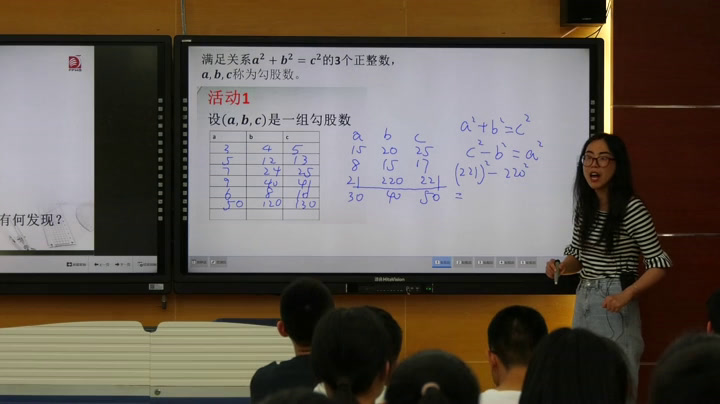 有何发现?
满足关系a² + b² = c²的3个正整数,
a, b, c称为勾股数。
活动1
设(a, b, c)是一组勾股数
a b c
3 4 5
5 12 13
7 24 25
9 40 41
6 8 10
50 120 130
a b c
15 20 25
8 15 17
21 220 221
30 40 50
a²+b²=c²
c²-b²=a²
(221)²-220²
=
HiteVision